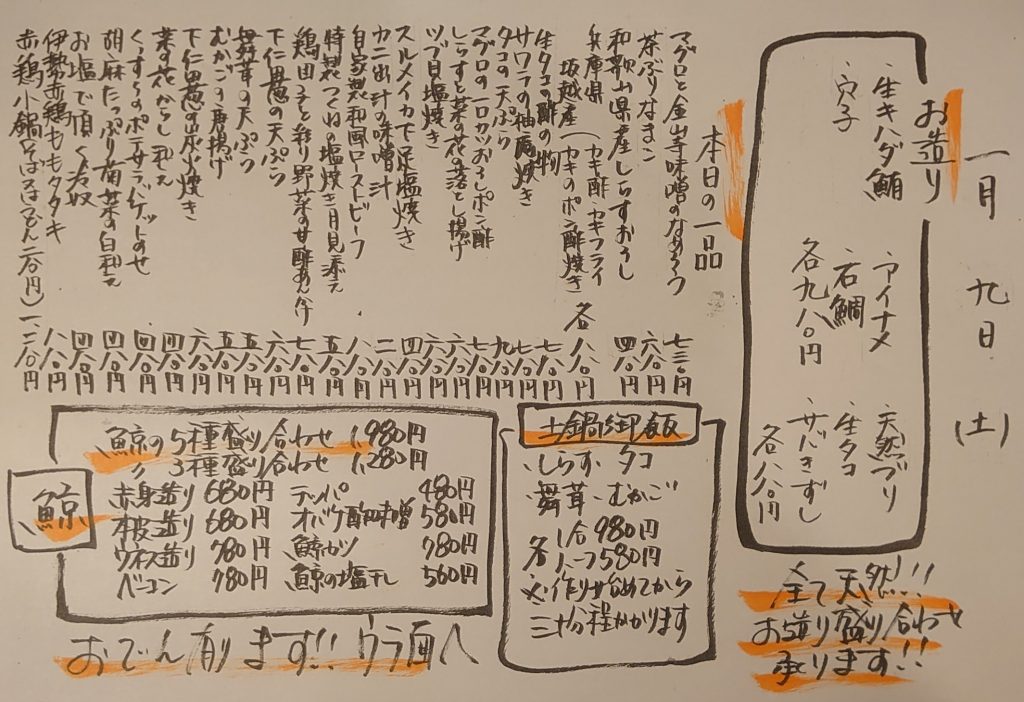 一月 九日 (土)
お造り
生キハダ鮪 アイナメ 天然ブリ
穴子 石鯛 生タコ
各九八〇円 サバきずし
各八八〇円
全て天然!!
お造り盛り合わせ
承ります!!
本日の一品
マグロと金山寺味噌のなめろう 七三〇円
茶ぶりなまこ 六八〇円
和歌山県産しらすおろし 四八〇円
兵庫県坂越産(カキ酢 カキフライ
カキのポン酢焼き) 各八八〇円
生タコの酢の物 七八〇円
サワラの柚庵焼き 七八〇円
タコの天ぷら 九八〇円
マグロの一口カツおろしポン酢 七八〇円
しらすと菜の花の落とし揚げ 六八〇円
ツブ貝塩焼き 六八〇円
スルメイカ下足塩焼き 四八〇円
カニ出汁の味噌汁 二八〇円
自家製和風ローストビーフ 八八〇円
特製つくねの塩焼き 月見添え 五八〇円
鶏団子と彩り野菜の甘酢あんかけ 七八〇円
下仁田葱の天ぷら 五八〇円
舞茸の天ぷら 五八〇円
むかごの唐揚げ 五八〇円
下仁田葱の炭火焼き 六八〇円
菜の花からし和え 四八〇円
くっすらのポテサラ バゲットのせ 四八〇円
胡麻たっぷり菊菜の白和え 四八〇円
お塩で頂く冷奴 四八〇円
伊勢赤鶏ももタタキ 八八〇円
赤鶏小鍋 一、二八〇円
土鍋御飯
しらす タコ
舞茸 むかご
一合980円
各ハーフ580円
※作り始めてから
三十分程かかります
鯨
鯨の5種盛り合わせ 1,980円
〃 3種盛り合わせ 1,280円
赤身造り 680円 テッパ 480円
本皮造り 680円 オバケ酢味噌 580円
ウネス造り 780円 鯨カツ 780円
ベーコン 780円 鯨の塩干し 560円
おでん有ります!! ウラ面へ